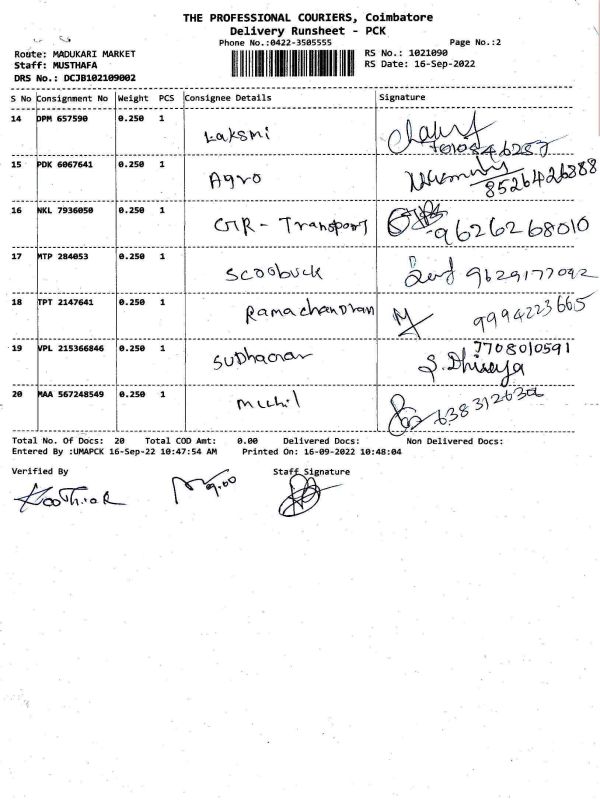 THE PROFESSIONAL COURIERS, Coimbatore
Delivery Runsheet - PCK
Phone No.:0422-3505555 Page No.:2
Route: MADUKARI MARKET RS No.: 1021090
Staff: MUSTHAFA RS Date: 16-Sep-2022
DRS No.: DCJB102109002
S No Consignment No Weight PCS Consignee Details Signature
14 DPM 657590 0.250 1 Laksmi
15 PDK 6067641 0.250 1 Agro 8526426888
16 NKL 7936050 0.250 1 GTR - Transport 9626268010
17 MTP 284053 0.250 1 Scoobuck 9629177092
18 TPT 2147641 0.250 1 Ramachandran 9994223665
19 VPL 215366846 0.250 1 Sudhacnar 7708010591
S. Dhivya
20 MAA 567248549 0.250 1
Total No. Of Docs: 20 Total COD Amt: 0.00 Delivered Docs: Non Delivered Docs:
Entered By :UMAPCK 16-Sep-22 10:47:54 AM Printed On: 16-09-2022 10:48:04
Verified By Staff Signature